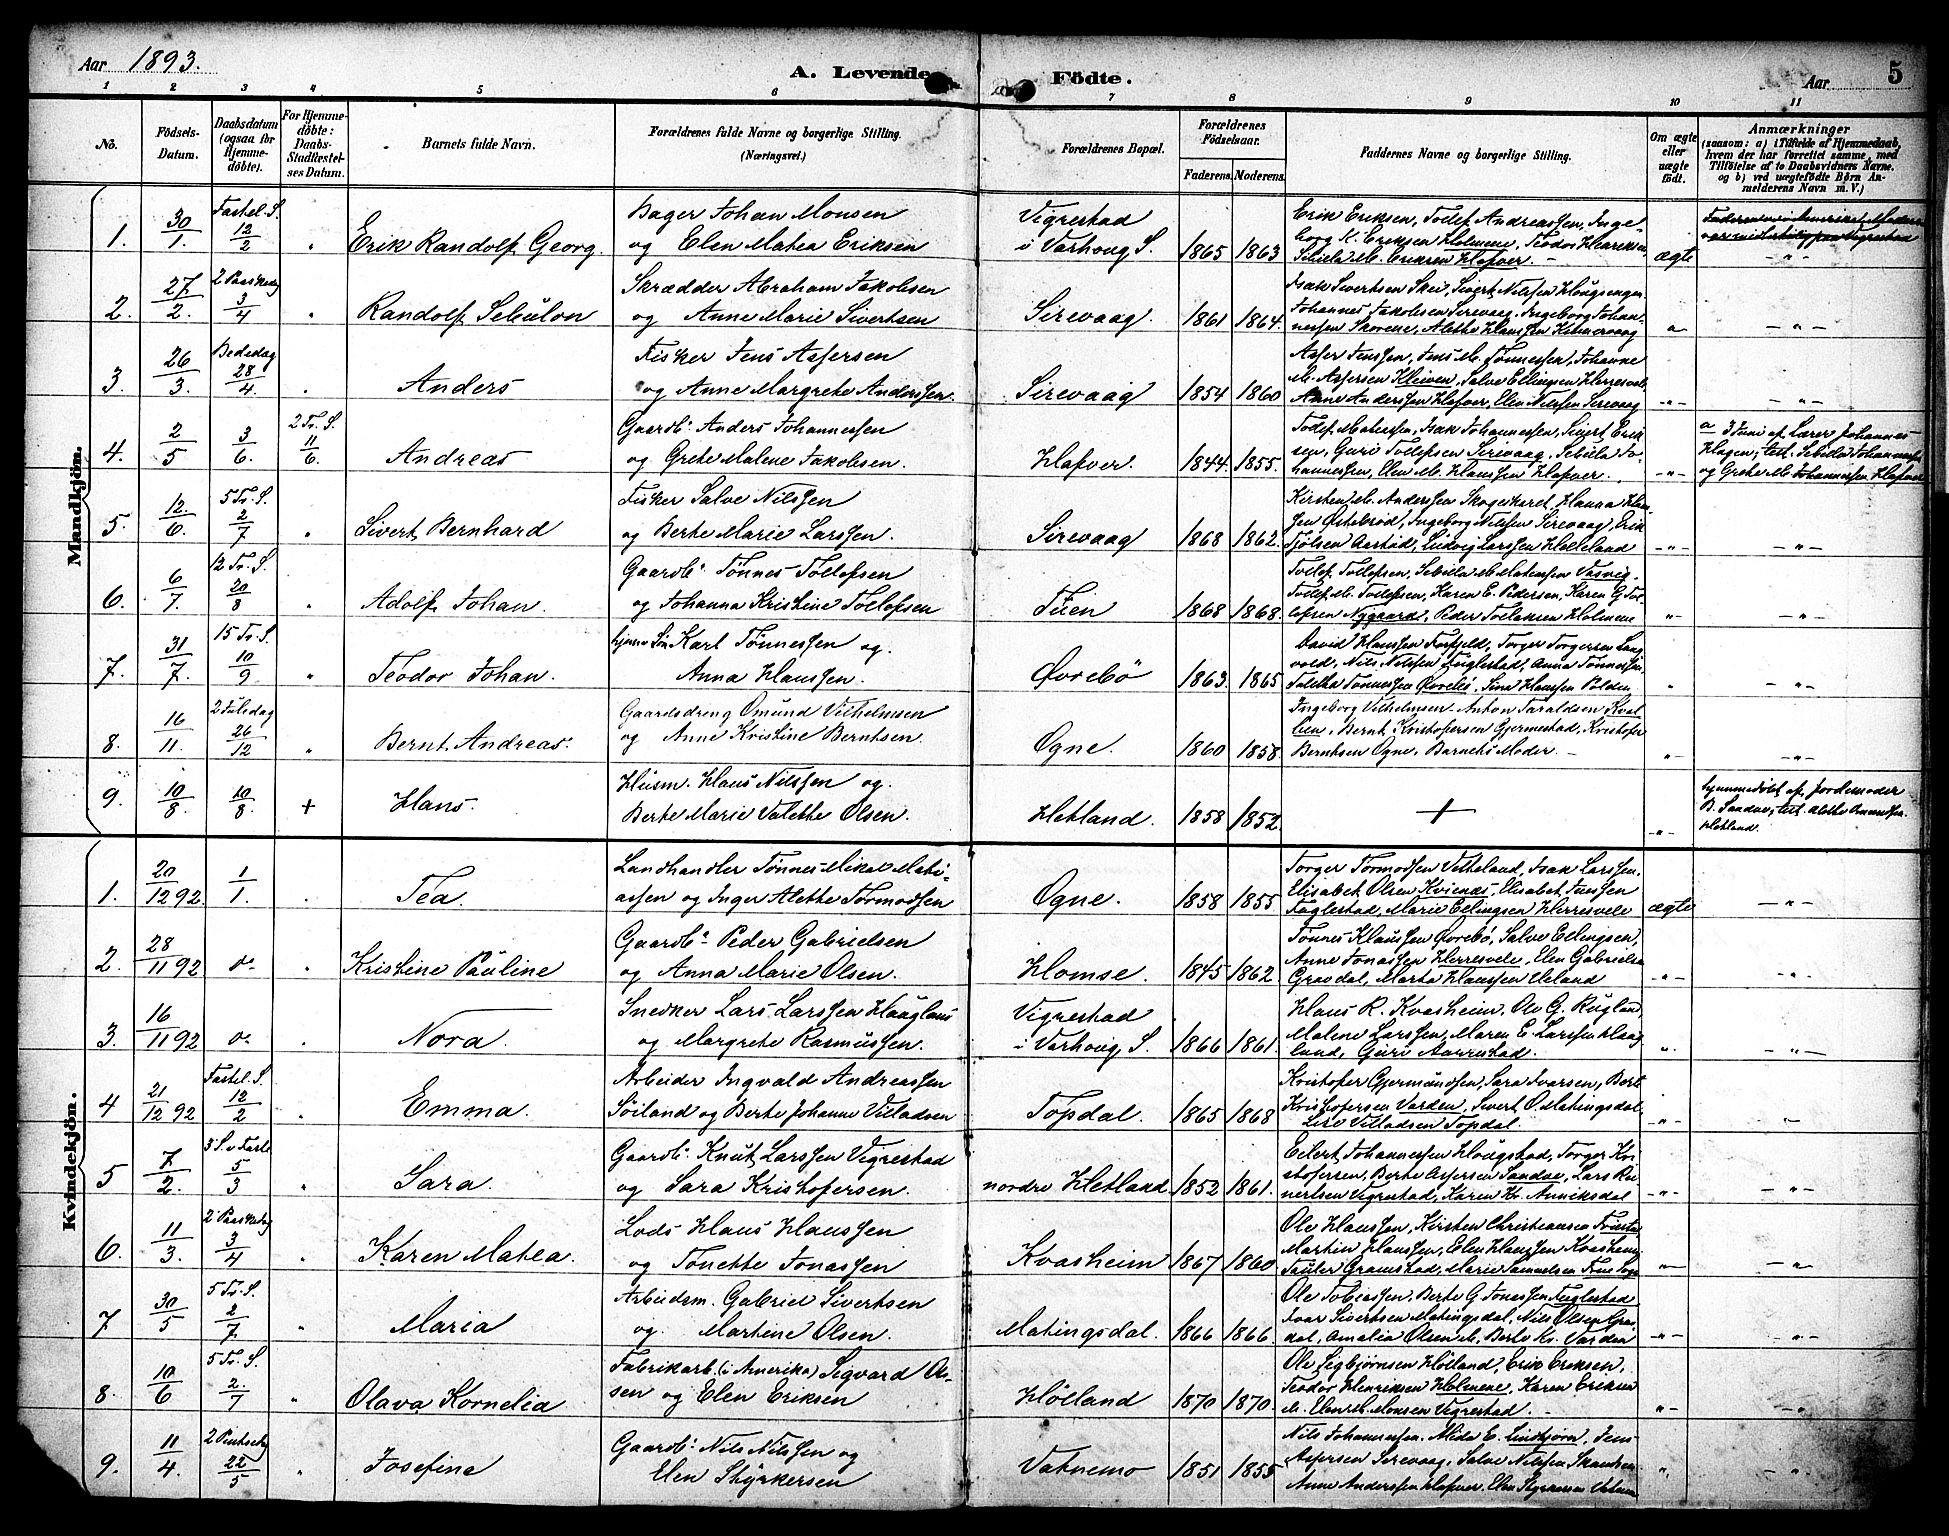 Aar 1893.
A. Levende Födte.
Aar 5
1 2 3 4 5 6 7 8 9 10 11
No.
Födsels-Datum.
Daabsdatum (ogsaa for Hjemmedöbte).
For Hjemmedöbte: Daabs-Stadfæstelses Datum.
Barnets fulde Navn.
Forældrenes fulde Navne og borgerlige Stilling. (Næringsvei.)
Forældrenes Bopæl.
Forældrenes Födselsaar.
Faderens. Moderens.
Faddernes Navne og borgerlige Stilling.
Om ægte eller uægte födt.
Anmærkninger (saasom: a) i Tilfælde af Hjemmedaab, hvem der har forrettet samme, med Tilföielse af to Daabsvidners Navne. og b) ved uægtefödte Börn Anmelderens Navn m. V.)
Mandkjön.
1. 30/1. Fastel. S. 12/2 " Erik Randolf Georg.
Bager Johan Monsen
og Elen Matea Eriksen
Vigrestad
i Varhoug S.
1865 1863
Erik Eriksen, Tollef Andreassen, Inge-
borg K. Eriksen Holmene, Teodor Henriksen,
Sebila M. Eriksen Hafver. –
ægte
– " –
2. 27/2. 2 Paaskedag 3/4 " Randolf Sebulon
Skrædder Abraham Jakobsen
og Anne Marie Sivertsen
Sirevaag.
1861 1864
Isak Sivertsen Skei, Sivert Nilssen
Johannes Jakobsen Sirevaag, Ingeborg Johan-
nessen, Alethe Hanssen
– " –
3. 26/3. Bededag 28/4. " Anders
Fisker Jens Assersen
og Anne Margrete Anderssen.
Sirevaag
1854 1860
Asser Jenssen, Jens M. Tönnessen, Johanne
M. Assersen Kleiven, Salve Ellingsen Herresvele,
Anne Anderssen Hafver, Elen Nilssen Sirevaag
– " –
– " –
4. 2/5 3/6. 2 Tr. S. 11/6. Andreas
Gaardb. Anders Johannessen
og Grete Malene Jakobsen.
Hafver.
1844 1855.
Tollef Matessen, Isak Johannessen, Sivert Erik-
sen, Guri Tollefsen Sirevaag, Sebila Jo-
hannessen, Elen M. Hanssen Hafver.
– " –
a 3 Juni af Lærer Johannes
Hagen; test. Sebila Johannessen
og Grethe M. Johannessen Hafver
5. 12./6. 5 Tr. S. 2/7 " Sivert Bernhard
Fisker Salve Nilssen
og Berte Marie Larssen.
Sirevaag
1868 1862.
Kirsten M. Anderssen Skogeskaret, Hanna Han-
sen Østebrød, Ingeborg Nilssen Sirevaag, Erik
Tjölsen Aarstad, Ludvig Larssen Helleland
– " –
– " –
6. 6/7. 12 Tr. S. 20/8 " Adolf Johan.
Gaardb. Tönnes Tollefsen
og Johanna Kristine Tollefsen
Tuen
1868 1868.
Tollef Tollefsen, Sebilla M. Matessen
Tollef M. Tollefsen, Karen E. Pedersen, Karen G. Tol-
lefsen Nygaard, Peder Torkelsen Holmene
– " –
– " –
7. 31/7. 15 Tr. S. 10/9 " Teodor Johan.
Karl Tönnessen og.
Anna Hanssen.
Øvrebö
1863. 1865
David Hanssen, Torger Torgersen
Nils Nilssen Fuglestad, Anna Tönnessen,
Tonnessen Øvrebö, Sina Hanssen Polden
"
– " –
8. 16/11. 2 Juledag 26/12 " Bernt Andreas.
Gaardsdreng Omund Vilhelmsen
og Anne Kristine Berntsen.
Ogne.
1860 1858.
Ingeborg Vilhelmsen. Anton Taraldsen Kval-
lien, Bernt Kristofersen Gjermestad, Kristofer
Berntsen Ogne, Barnets Moder. –
"
– " –
9. 10/8 10/8. + Hans.
Husm. Hans Nilssen og.
Berte Marie Valette Olsen.
Hetland.
1858 1852.
+
"
hjemmedöbt af Jordemoder
B. Sandve; test. Alethe Omundsen
Hetland.
Kvindekjön.
1. 20/12 92. 1/1. " Tea.
Landhandler Tönnes Mikal Mati-
assen og Inger Alette Tormodsen
Ogne.
1858 1855
Torger Tormodsen Vetteland, Isak Larssen,
Elisabet Olsen Kvienes, Elisabet Jenssen
Fuglestad, Marie Ellingsen Herresvele
ægte
– " –
2. 28/11 92 do " Kristine Pauline
Gaardb. Peder Gabrielsen
og Anna Marie Olsen.
Homse.
1845 1862
Tönnes Klaussen Øvrebö, Salve Ellingsen,
Anne Jonassen Herresvele, Elen Gabrielsen
Gravdal, Marta Hanssen Ueland
– " –
– " –
3. 16/11 92 do " Nora.
Snedker Lars Larssen Haugland
og Margrete Rasmussen.
Vigrestad
i Varhoug S.
1866 1861.
Hans R. Kvasheim, Ole G. Rugland,
Malene Larssen, Maren E. Larssen Haag-
land, Guri Aarrestad.
"
– " –
4 21/12 92 Fastel. S. 12/2 " Emma.
Arbeider Ingvald Andreassen
Söiland og Berte Johanne Villadsen
Topdal.
1865 1868
Kristofer Gjermundsen, Sara Ivarsen, Berte
Kristofersen Varden, Sivert O. Matingsdal,
Lise Villadsen Topdal.
– " –
5 7/2. 3 S. i Faste 5/3 " Sara.
Gaardb. Knut Larssen Vigrestad
og Sara Kristofersen.
nordre Hetland
1852 1861.
Eilert Johannessen Hougstad, Torger Kri-
stofersen, Berte Assersen Sandve, Lars Rei-
nertsen Vigrestad, Karen Kr. Anniksdal
– " –
– " –
6. 11/3. 2 Paaskedag 3/4 " Karen Matea.
Lods Hans Hanssen
og Tonette Jonassen
Kvasheim
1867 1860
Ole Hanssen, Kirsten Christiansen
Martin Hanssen, Elen Hanssen Kvasheim,
Gramstad, Marie Samuelsen
– " –
– " –
7 30/5 5 Tr. S. 2/7 " Maria
Arbeidsm. Gabriel Sivertsen
og. Martine Olsen.
Matingsdal.
1866 1866.
Ole Tobiassen. Berte G. Jonessen Fuglestad
Ivar Sivertsen Matingsdal, Nils Olsen Grav-
dal, Amalia Olsen M., Berte Kr. Varden
– " –
– " –
8. 10/6 5 Tr. S. 2/7 " Olava Kornelia
Fabrikarb. (i Amerika) Sigvard Ols-
sen og Elen Eriksen
Hölland
1870 1870.
Ole Sigbjörnsen Hölland, Erik Eriksen,
Teodor Henriksen Holmene, Karen Eriksen
M. Elen M. Monsen Vigrestad.
– " –
– " –
9. 11/4. 2 Pintsedag 22/5 " Josefine
Gaardb. Nils Nilssen og
Elen Styrkersen
Vatnemo
1851 1855
Nils Johannessen. Alida E. Lindtjörn, Jens
Assersen Sirevaag, Salve Nilssen
Anne Anderssen Hafver. Elen Styrkersen
"
– " –